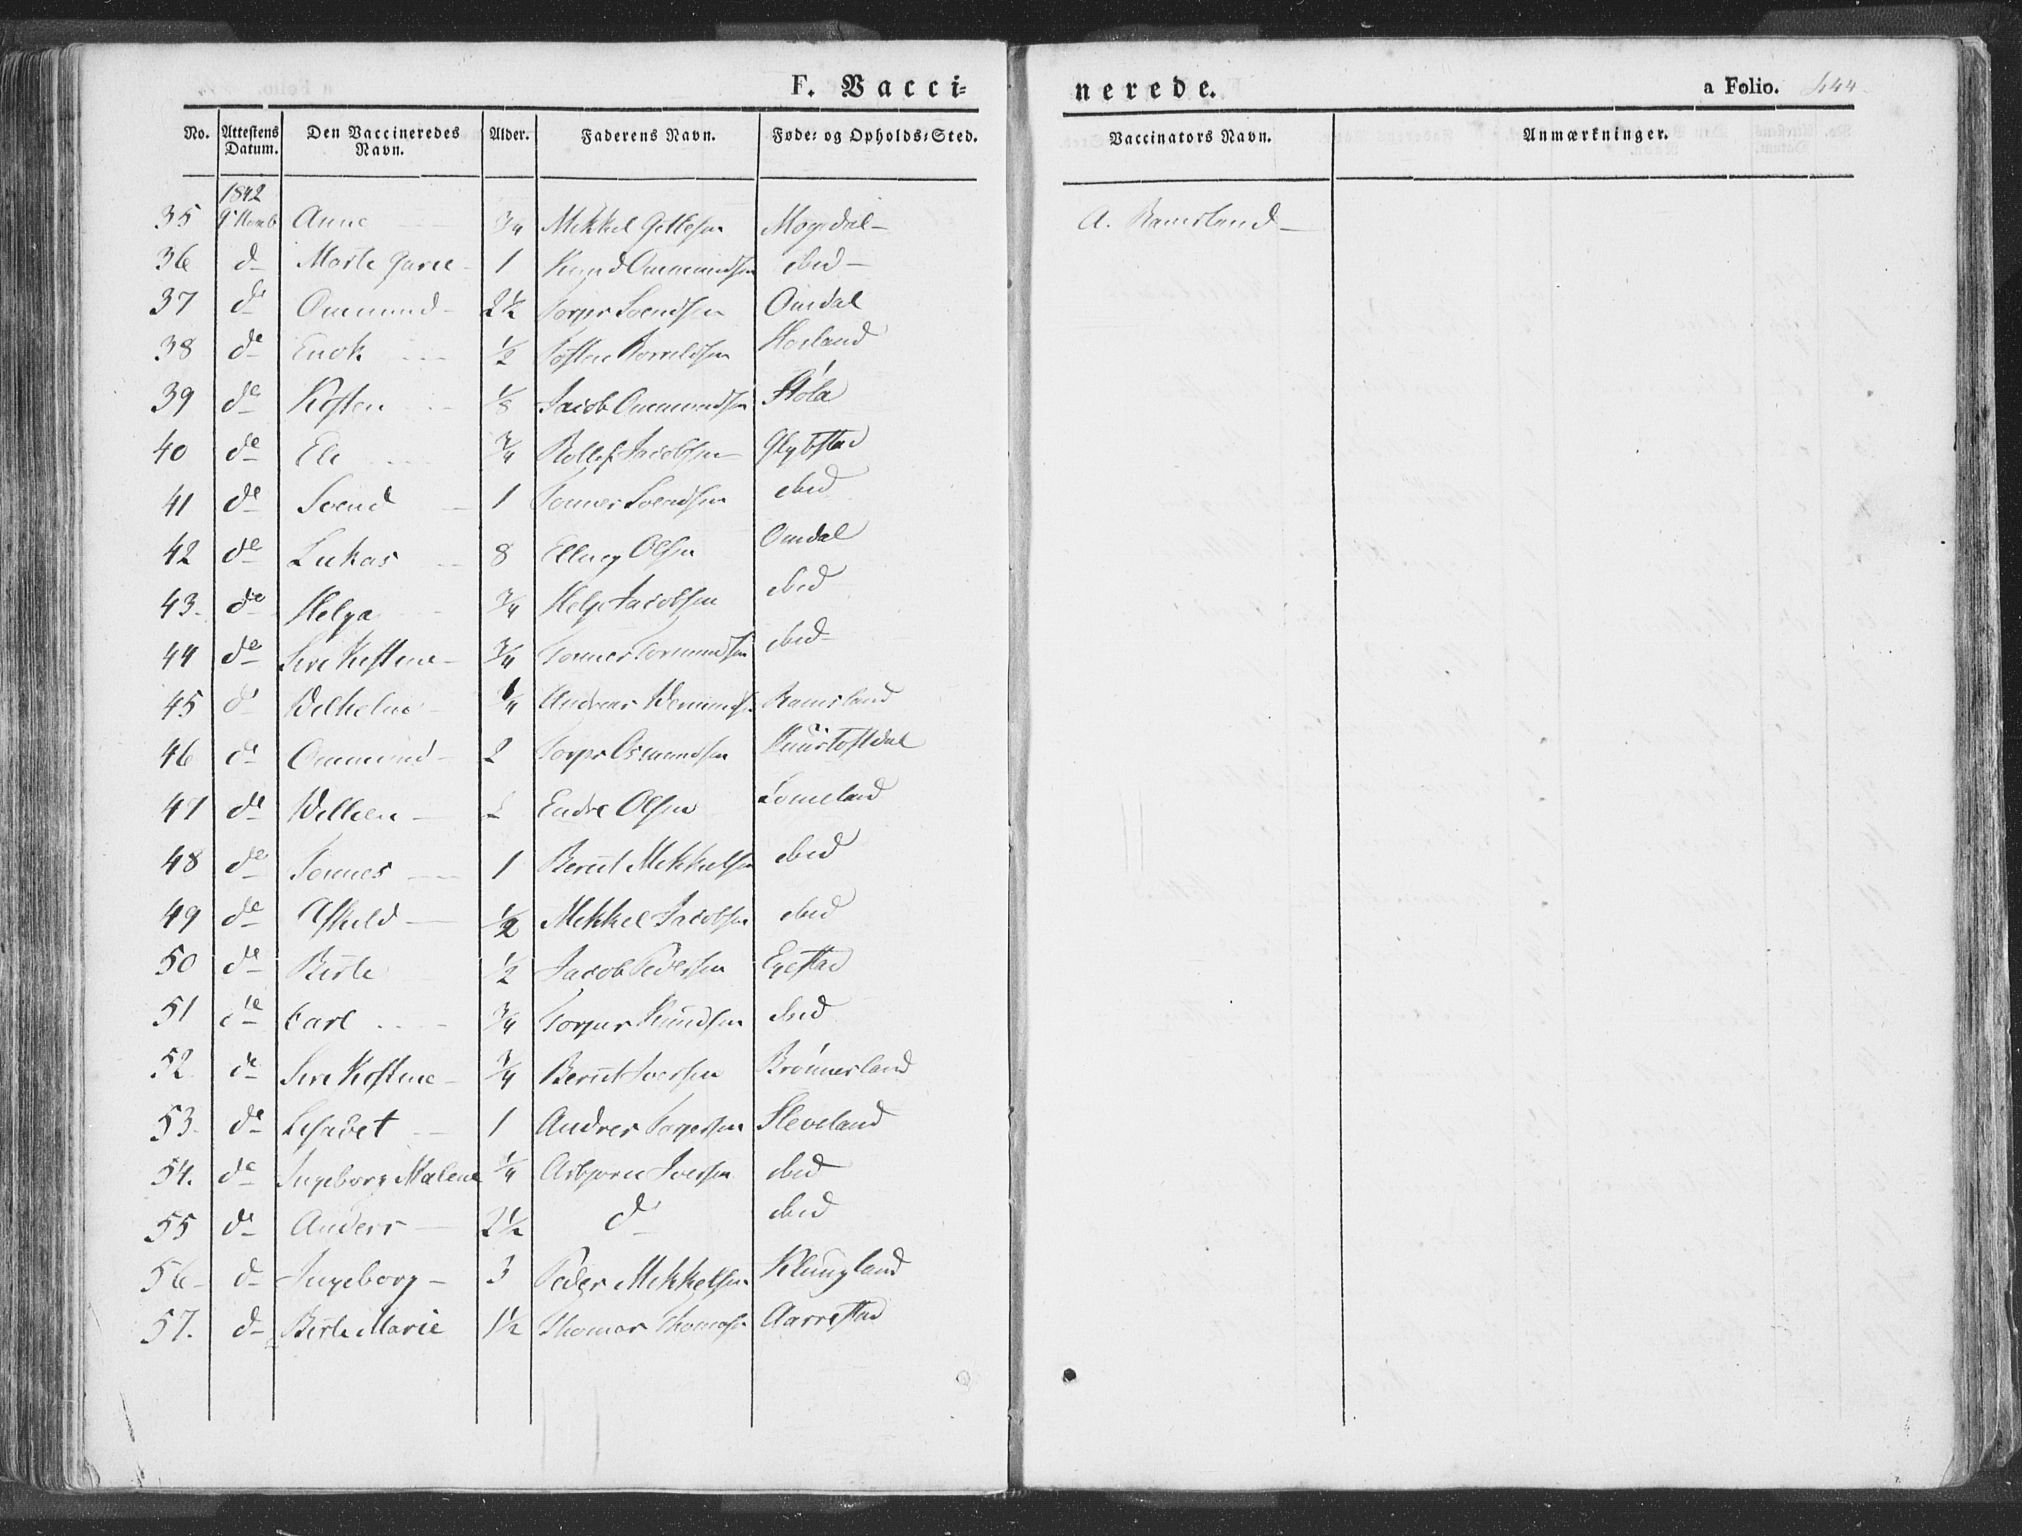 F. Vacci=
nerede.
a Folio. 444
No. Attestens Datum. Den Vaccineredes Navn. Alder. Faderens Navn. Føde= og Opholds=Sted. Vaccinators Navn. Anmærkninger.
1842
35 Anne 3/4 Mikkel Mogedal A. Ramsland
36 d Marte 1 Knud Ommundsen ibid
37 do Ommund 2½ Torger Svendsen Omdal
38 do Enok ½ Tosten
39 do Kisten 1/8 Jacob Ommundsen Støla
40 do Eli 3/4 Rollef Jacobsen
41 do Svend 1 Tønnes Svendsen ibid
42 do Lukas 8 Elling Olsen Omdal
43. do Helga 3/4 Helge Jacobsen ibid
44 do Siri Kistine 3/4 Tønnes ibid
45 do Vilhelm 1/4 Andreas Ramsland
46 do Ommund 2 Torger Osmundsen
47 do Villien Endre Olsen Lomeland
48 do Tønnes 1 Berent Mikkelsen ibid
49 do Askild ½ Mikkel Jacobsen ibid
50 do Birte ½ Jacob Pedersen Egestad
51 do Carl 3/4 Torger Knudsen ibid
52. do Siri Kistine 3/4 Berent Iversen Brønnesland
53. do Lisabet 1 Andres Torgersen Sleveland
54. do Ingeborg Malene 1/4 Asbjørn Iversen ibid
55 do Anders 2½ do ibid
56 d Ingeborg 3 Peder Mikkelsen Klungland
57. d Birte Marie 1½ Thomas Thomasen Aarrestad